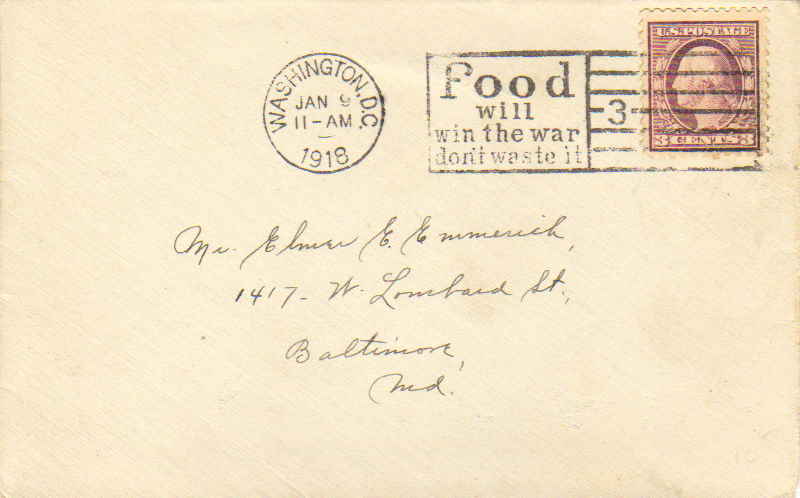 WASHINGTON, D.C.
JAN 9
11-AM
1918
Food
will
win the war
don't waste it
3
U.S. POSTAGE
3 CENTS 3
Mr. Elmer E. Emmerich,
1417- W. Lombard St.,
Baltimore,
Md.